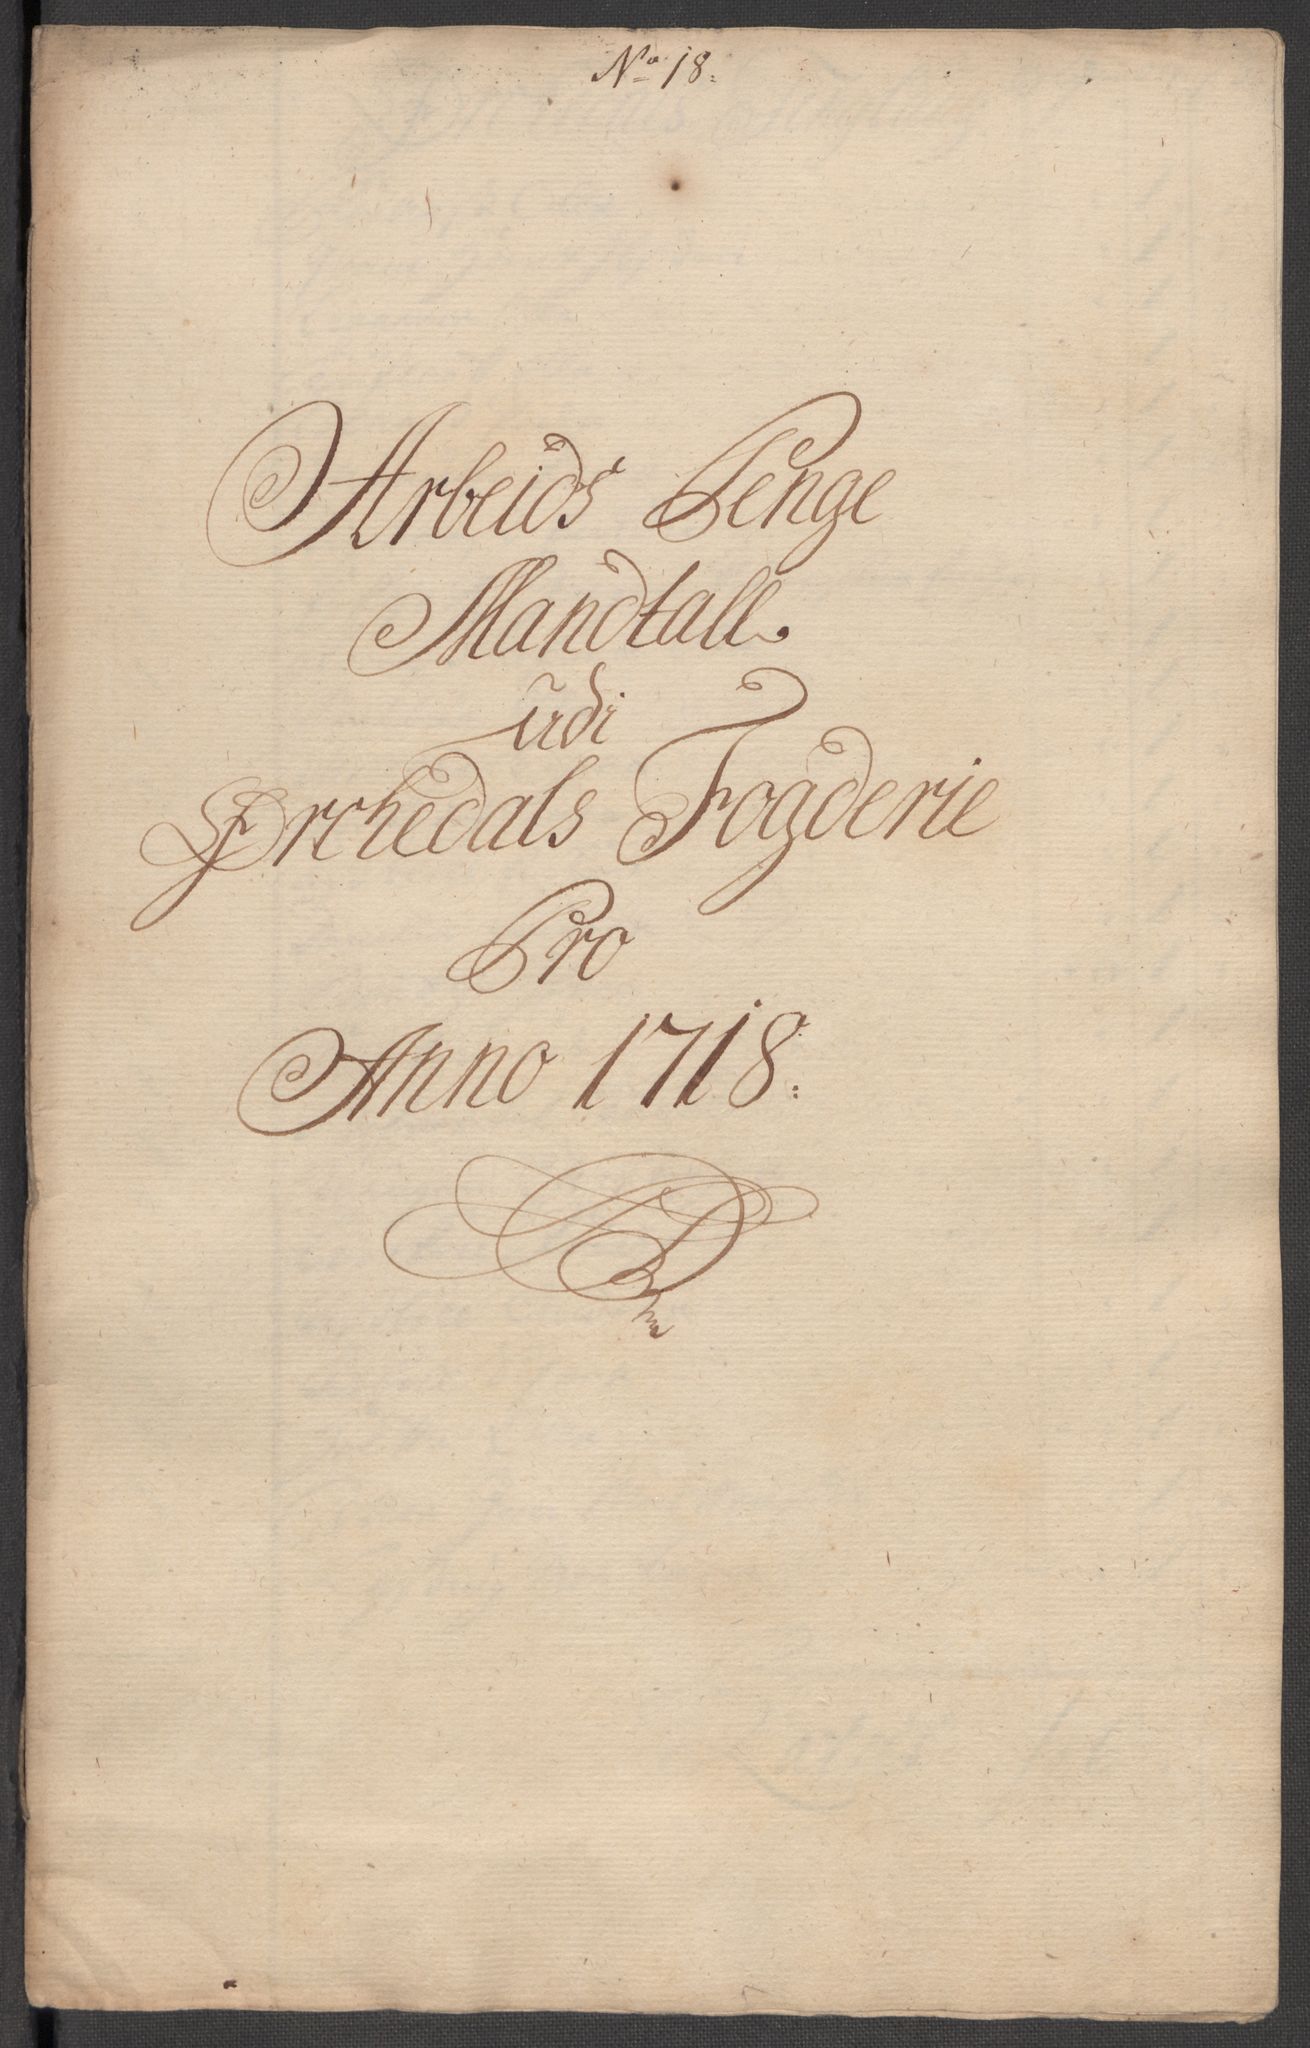 No 18.
Arbeids Penge
Mandtall
udi
Ørchedals Fogderie
Pro
Anno 1718.